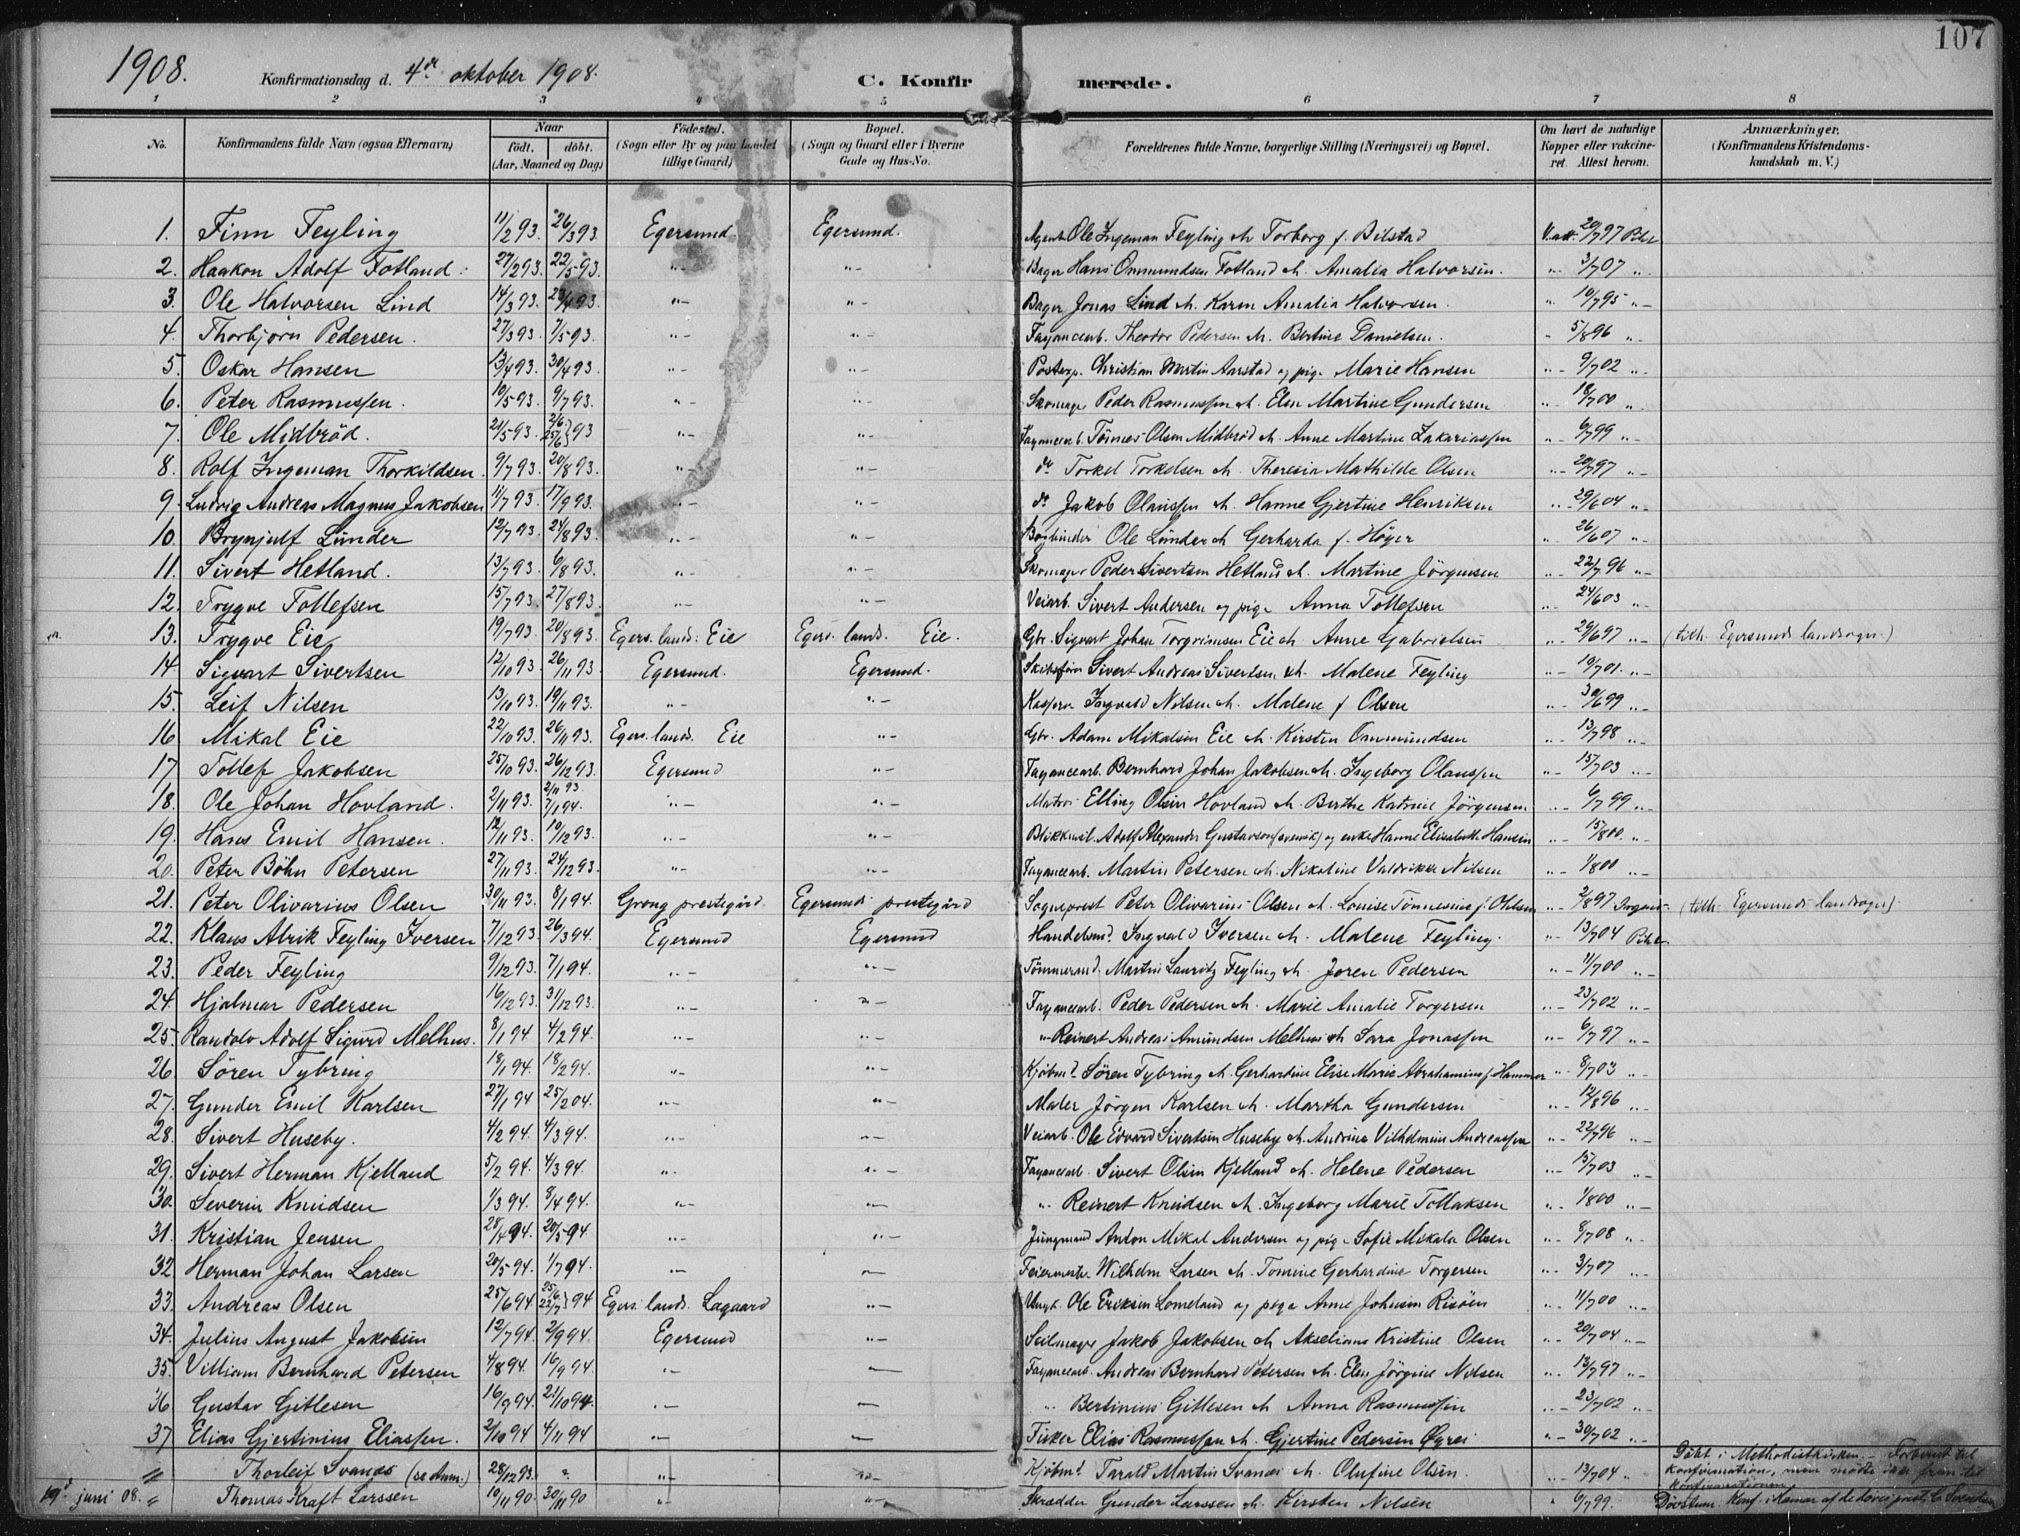 107
1908. Konfirmationsdag d. 4de oktober 1908. C. Konfirmerede.
1 2 3 4 5 6 7 8
No. Konfirmandens fulde Navn (ogsaa Efternavn) Naar født. døbt. (Aar, Maaned og Dag) Födested. (Sogn eller By og paa Landet tillige Gaard) Bopæl. (Sogn og Gaard eller i Byerne Gade og Hus-No.) Forældrenes fulde Navne, borgerlige Stilling (Næringsvei) og Bopæl. Om havt de naturlige Kopper eller vakcineret. Attest herom. Anmærkninger. (Konfirmandens Kristendomskundskab m. V.)
1. Finn Feyling 11/2 93. 26/3 93. Egersund Egersund. Agent Ole Ingeman Feyling & Torborg f. Bilstad V.att. 20/7 97
2. Haakon Adolf Fotland. 27/2 93. 22/5 93. "- "- Bager Hans Ommundsen Fotland & Amalia Halvorsen. "- 3/7 07 "-
3. Ole Halvorsen Lind 14/3 93. 23/4 93. "- "- Bager Jonas Lind & Karen Amalia Halvorsen. " 10/7 95 "-
4. Thorbjørn Pedersen. 27/3 93. 7/5 93. "- "- Fayancearb. Theodor Pedersen & Bertine Danielsen. " 5/8 96 "-
5. Oskar Hansen 13/4 93. 30/4 93. "- "- Postexp. Christian Martin Aarstad og pige Marie Hansen "- 9/7 02 "-
6. Peter Rasmussen. 10/5 93. 9/7 93. "- "- Skomager Peder Rasmussen & Elen Martine Gundersen "- 18/7 00 "-
7. Ole Midbrød. 21/5 93. 2/6 25/6 } 93 "- "- Fayancearb. Tönnes Olsen Midbrød & Anne Martine Zakariassen "- 6/7 99 "-
8. Rolf Ingeman Thorkildsen. 9/7 93. 20/8 93. "- "- do Torkel Torkelsen & Theresia Mathilde Olsen "- 20/7 97 "-
9. Ludvig Andreas Magnus Jakobsen 11/7 93. 17/9 93. "- "- do Jakob Olaussen & Hanne Gjertine Henriksen "- 29/6 04 "-
10. Brynjulf Lunder 12/7 93. 24/8 93. "- "- Bogbinder Ole Lunder & Gerharda f. Höyer "- 26/6 07 "-
11. Sivert Hetland. 13/7 93. 6/8 93. "- "- Skomager Peder Sivertsen Hetland & Martine Jörgensen "- 22/7 96 "-
12. Trygve Tollefsen 15/7 93. 27/8 93. "- "- Veiarb. Sivert Andersen og pige Anna Tollefsen "- 24/6 03 "-
13. Trygve Eie 19/7 93. 20/8 93. Egers. lands. Eie Egers. lands. Eie. Gbr. Sigvart Johan Torgrimsen Eie & Anne Gabrielsen "- 29/6 97 "- (tilh. Egersunds landsogn.)
14 Sigvart Sivertsen 12/10 93. 26/11 93. Egersund. Egersund. Sivert Andreas Sivertsen & Malene Feyling "- 10/7 01. "-
15. Leif Nilsen 13/10 93. 19/11 93. "- "- Ingvald Nilsen & Malene f Olsen "- 30/6 99 "-
16 Mikal Eie 22/10 93. 26/11 93. Egers. lands. Eie "- Gbr. Adam Mikalsen Eie & Kirsten Ommundsen "- 13/7 98 "-
17. Tollef Jakobsen 25/10 93. 26/12 93. Egersund "- Fayancearb. Bernhard Johan Jakobsen & Ingeborg Olaussen "- 15/7 03 "-
18. Ole Johan Hovland. 2/11 93. 2/11 93 7/1 94. "- "- Matros Elling Olsen Hovland & Berthe Katrine Jörgensen "- 6/7 99 "-
19. Hans Emil Hansen. 12/11 93. 10/12 93. "- "- Adolf Alexander Gustavson (svensk) og enke Hanne Elisabeth Hansen "- 15/8 00. "-
20. Peter Böhn Petersen 27/11 93. 24/12 93. "- "- Fayancearb. Martin Petersen & Nikoline Valdrikke Nilsen "- 1/8 00 "-
21. Peter Olivarius Olsen 30/11 93. 8/1 94. Grong prestegård Egersunds prestegård Sogneprest Peter Olivarius Olsen & Louise Tönnesine f. Ohlsen "- 2/8 97 (tilh. Egersunds landsogn).
22. Klaus Alrik Feyling Iversen 7/12 93. 26/3 94. Egersund Egersund Handelsmd. Ingvald Iversen & Malene Feyling. "- 13/7 04
23. Peder Feyling 9/12 93. 7/1 94. "- "- Tömmermd. Martin Lauritz Feyling & Joren Pedersen "- 11/7 00 "-
24. Hjalmar Pedersen 16/12 93. 31/12 93. "- "- Fayancearb. Peder Pedersen & Marie Amalie Torgersen "- 23/7 02 "-
25. Randolv Adolf Sigurd Melhus. 8/1 94 4/2 94. "- "- " Reinert Andreas Amundsen Melhus & Sara Jonassen "- 6/7 97 "-
26. Søren Tybring 18/1 94. 18/2 94. "- "- Kjöbmd. Søren Tybring & Gerhardine Elise Marie Abrahamine f. Hammer "- 8/7 03 "-
27. Gunder Emil Karlsen 27/1 94 25/2 04. "- "- Maler Jørgen Karlsen & Martha Gundersen "- 12/8 96 "-
28. Sivert Huseby. 4/2 94. 4/3 94. "- "- Veiarb. Ole Edvard Sivertsen Huseby & Andrine Vilhelmine Andreassen "- 22/7 96 "-
29. Sivert Herman Kjelland 5/2 94. 4/3 94. "- "- Fayancearb. Sivert Olsen Kjelland & Helene Pedersen "- 15/7 03 "-
30. Severin Knudsen 1/3 94. 8/4 94. "- "- " Reinert Knudsen & Ingeborg Marie Tollaksen "- 1/8 00 "-
31. Kristian Jensen 28/4 94. 20/5 94. "- "- Jungmand Anton Mikal Andersen og pige Sofie Mikala Olsen "- 8/7 08 "-
32. Herman Johan Larsen 20/5 94. 1/7 94. "- "- Feiermester Wilhelm Larsen & Tomine Gerhardine Torgersen "- 3/7 07 "-
33. Andreas Olsen 25/6 94. 25/6 22/7 } 94 Egers. lands. Lagaard "- Ungk. Ole Eriksen Lomeland og pige Anne Johnsen Risöen "- 11/7 00 "-
34. Julius August Jakobsen 12/7 94. 2/9 94. Egersund "- Seilmager Jakob Jakobsen & Akseliane Kristine Olsen "- 20/7 04 "-
35. Villiam Bernhard Petersen 4/8 94. 16/9 94. "- "- Fayancearb. Andreas Bernhard Petersen & Elen Jörgine Nilsen "- 13/7 97 "-
36 Gustav Gitlesen 16/9 94. 21/10 94. "- "- " Bertinius Gitlesen & Anna Rasmussen "- 23/7 02 "-
37 Elias Gjertinius Eliassen. 2/10 94 4/11 94 "- "- Fisker Elias Rasmussen & Gjertine Pedersen Øyrei "- 30/7 02 "-
" Thorleif Svanæs (se Anm.) 28/12 93. "- "- Kjøbmd. Tarald Martin Svanæs & Olufine Olsen. "- 13/7 04 "- Døbt i Methodistkirken. Forberedt til konfirmation, men mødte ikke frem til konfirmationen.
19de juni 08. " Thomas Kraft Larssen 10/11 90. 30/11 90 "- "- Skrædder Gunder Larssen & Kirsten Nilsen " 6/7 99. Døvstum. Konf. i Hamar af de døves prest, C. Svendsen